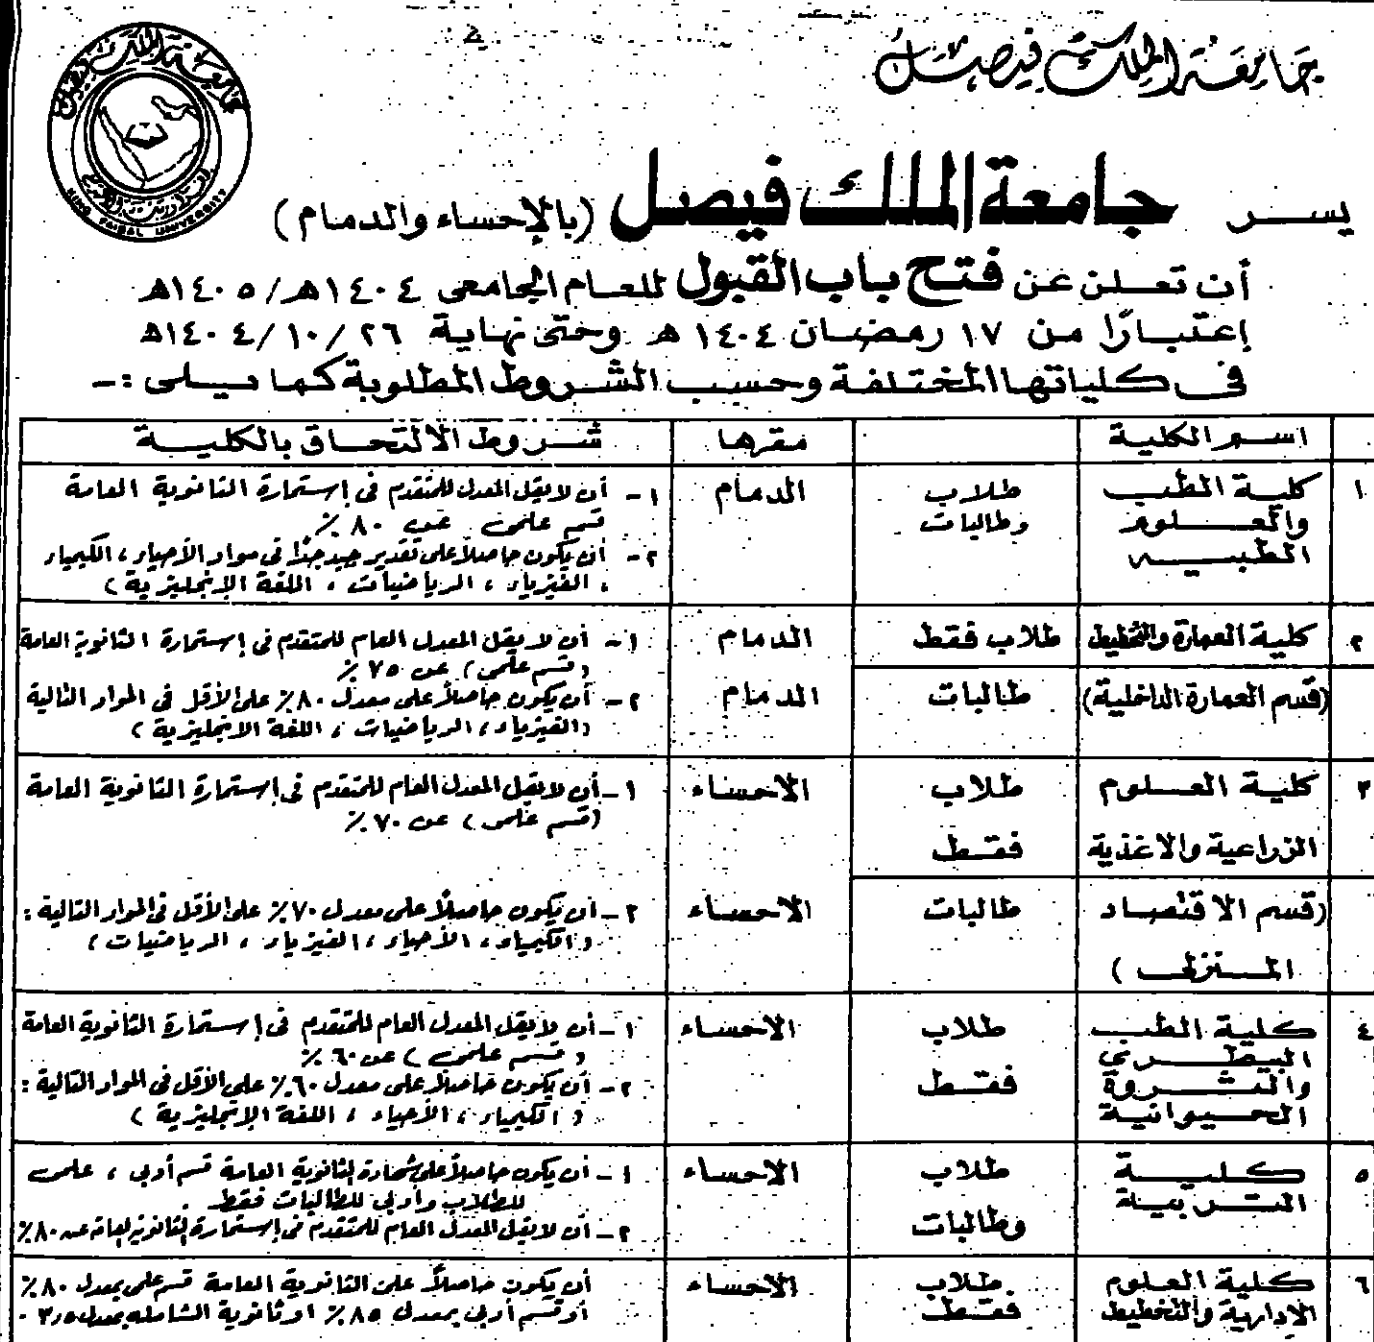 جامعة الملك فيصل
KING FAISAL UNIVERSITY
يسر جامعة الملك فيصل (بالإحساء والدمام)
أن تعلن عن فتح باب القبول للعام الجامعى ١٤٠٤هـ/١٤٠٥هـ
إعتبارًا من ١٧ رمضان ١٤٠٤ هـ وحتى نهاية ٢٦ /١٠ /١٤٠٤هـ
فى كلياتها المختلفة وحسب الشروط المطلوبة كما يلى :-
اسم الكلية مقرها شروط الالتحاق بالكلية
١ كلية الطب والعلوم الطبيه
طلاب وطالبات
الدمام
١ - أن لا يقل المعدل للمتقدم فى إستمارة الثانوية العامة
قسم علمى عن ٨٠ ٪
٢ - أن يكون حاصلاً على تقدير جيد جدًا فى مواد الأحياء ، الكيمياء
، الفيزياء ، الرياضيات ، اللغة الإنجليزية )
٢ كلية العمارة والتخطيط
طلاب فقط
الدمام
١ - أن لا يقل المعدل العام للمتقدم فى إستمارة الثانوية العامة
( قسم علمى ) عن ٧٥ ٪
(قسم العمارة الداخلية)
طالبات
الدمام
٢ - أن يكون حاصلاً على معدل ٨٠٪ على الأقل فى المواد التالية
(الفيزياء ، الرياضيات ، اللغة الانجليزية )
٣ كلية العلوم
الزراعية والاغذية
طلاب
فقط
الاحساء
١ - أن لا يقل المعدل العام للمتقدم فى إستمارة الثانوية العامة
(قسم علمى ) عن ٧٠٪
(قسم الاقتصاد
المنزلى )
طالبات
الاحساء
٢ - أن يكون حاصلاً على معدل ٧٠٪ على الأقل فى المواد التالية :
( الكيمياء ، الأحياء ، الفيزياء ، الرياضيات )
٤ كلية الطب
البيطرى
والثروة
الحيوانية
طلاب
فقط
الاحساء
١ - أن لا يقل المعدل العام للمتقدم فى إستمارة الثانوية العامة
( قسم علمى ) عن ٦٠ ٪
٢ - أن يكون حاصلاً على معدل ٦٠٪ على الأقل فى المواد التالية :
( الكيمياء ، الأحياء ، اللغة الإنجليزية )
٥ كلية
التربية
طلاب
وطالبات
الاحساء
١ - أن يكون حاصلاً على شهادة الثانوية العامة قسم أدبى ، علمى
للطلاب وأدبى للطالبات فقط
٢ - أن لا يقل المعدل العام للمتقدم فى إستمارة الثانوية العامة عن ٨٠٪
٦ كلية العلوم
الادارية والتخطيط
طلاب
فقط
الاحساء
أن يكون حاصلاً على الثانوية العامة قسم علمى بمعدل ٨٠٪
أو قسم أدبى بمعدل ٨٥٪ او ثانوية الشامله بمعدل ٣٫٥